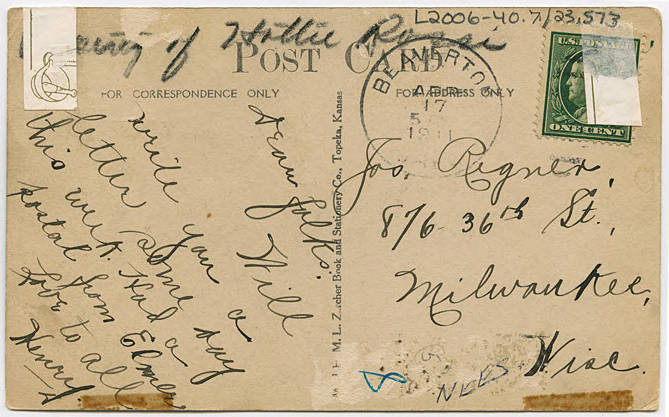 L2006-40.7/23,573
of Hottie Rossi
POST CARD
FOR CORRESPONDENCE ONLY
FOR ADDRESS ONLY
BEAVERTON
APR
17
5
1911
U.S. POSTAGE
ONE CENT
Dear folks:
Will
write you a
letter some day
this week. Had a
postal from Elmer
Love to all
Henry
M. L. Zercher Book and Stationery Co., Topeka, Kansas
Jos. Regner,
876-36th St.,
Milwaukee,
Wisc.
8